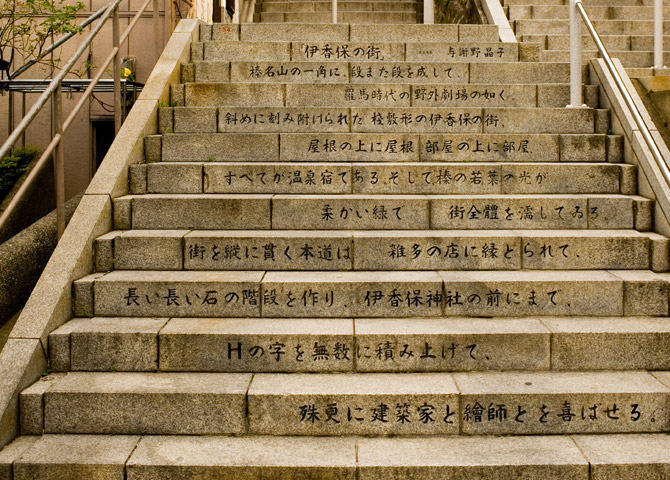 伊香保の街、 与謝野 晶子
榛名山の一角に、段また段を成して、
羅馬時代の野外劇場の如く、
斜めに刻み附けられた 桟敷形の伊香保の街、
屋根の上に屋根、部屋の上に部屋、
すべてが温泉宿である、そして、榛の若葉の光が
柔かい緑で 街全體を濡してゐる。
街を縦に貫く本道は 雑多の店に縁どられて、
長い長い石の階段を作り、伊香保神社の前にまで、
Hの字を無数に積み上げて、
殊更に建築家と繪師とを喜ばせる。